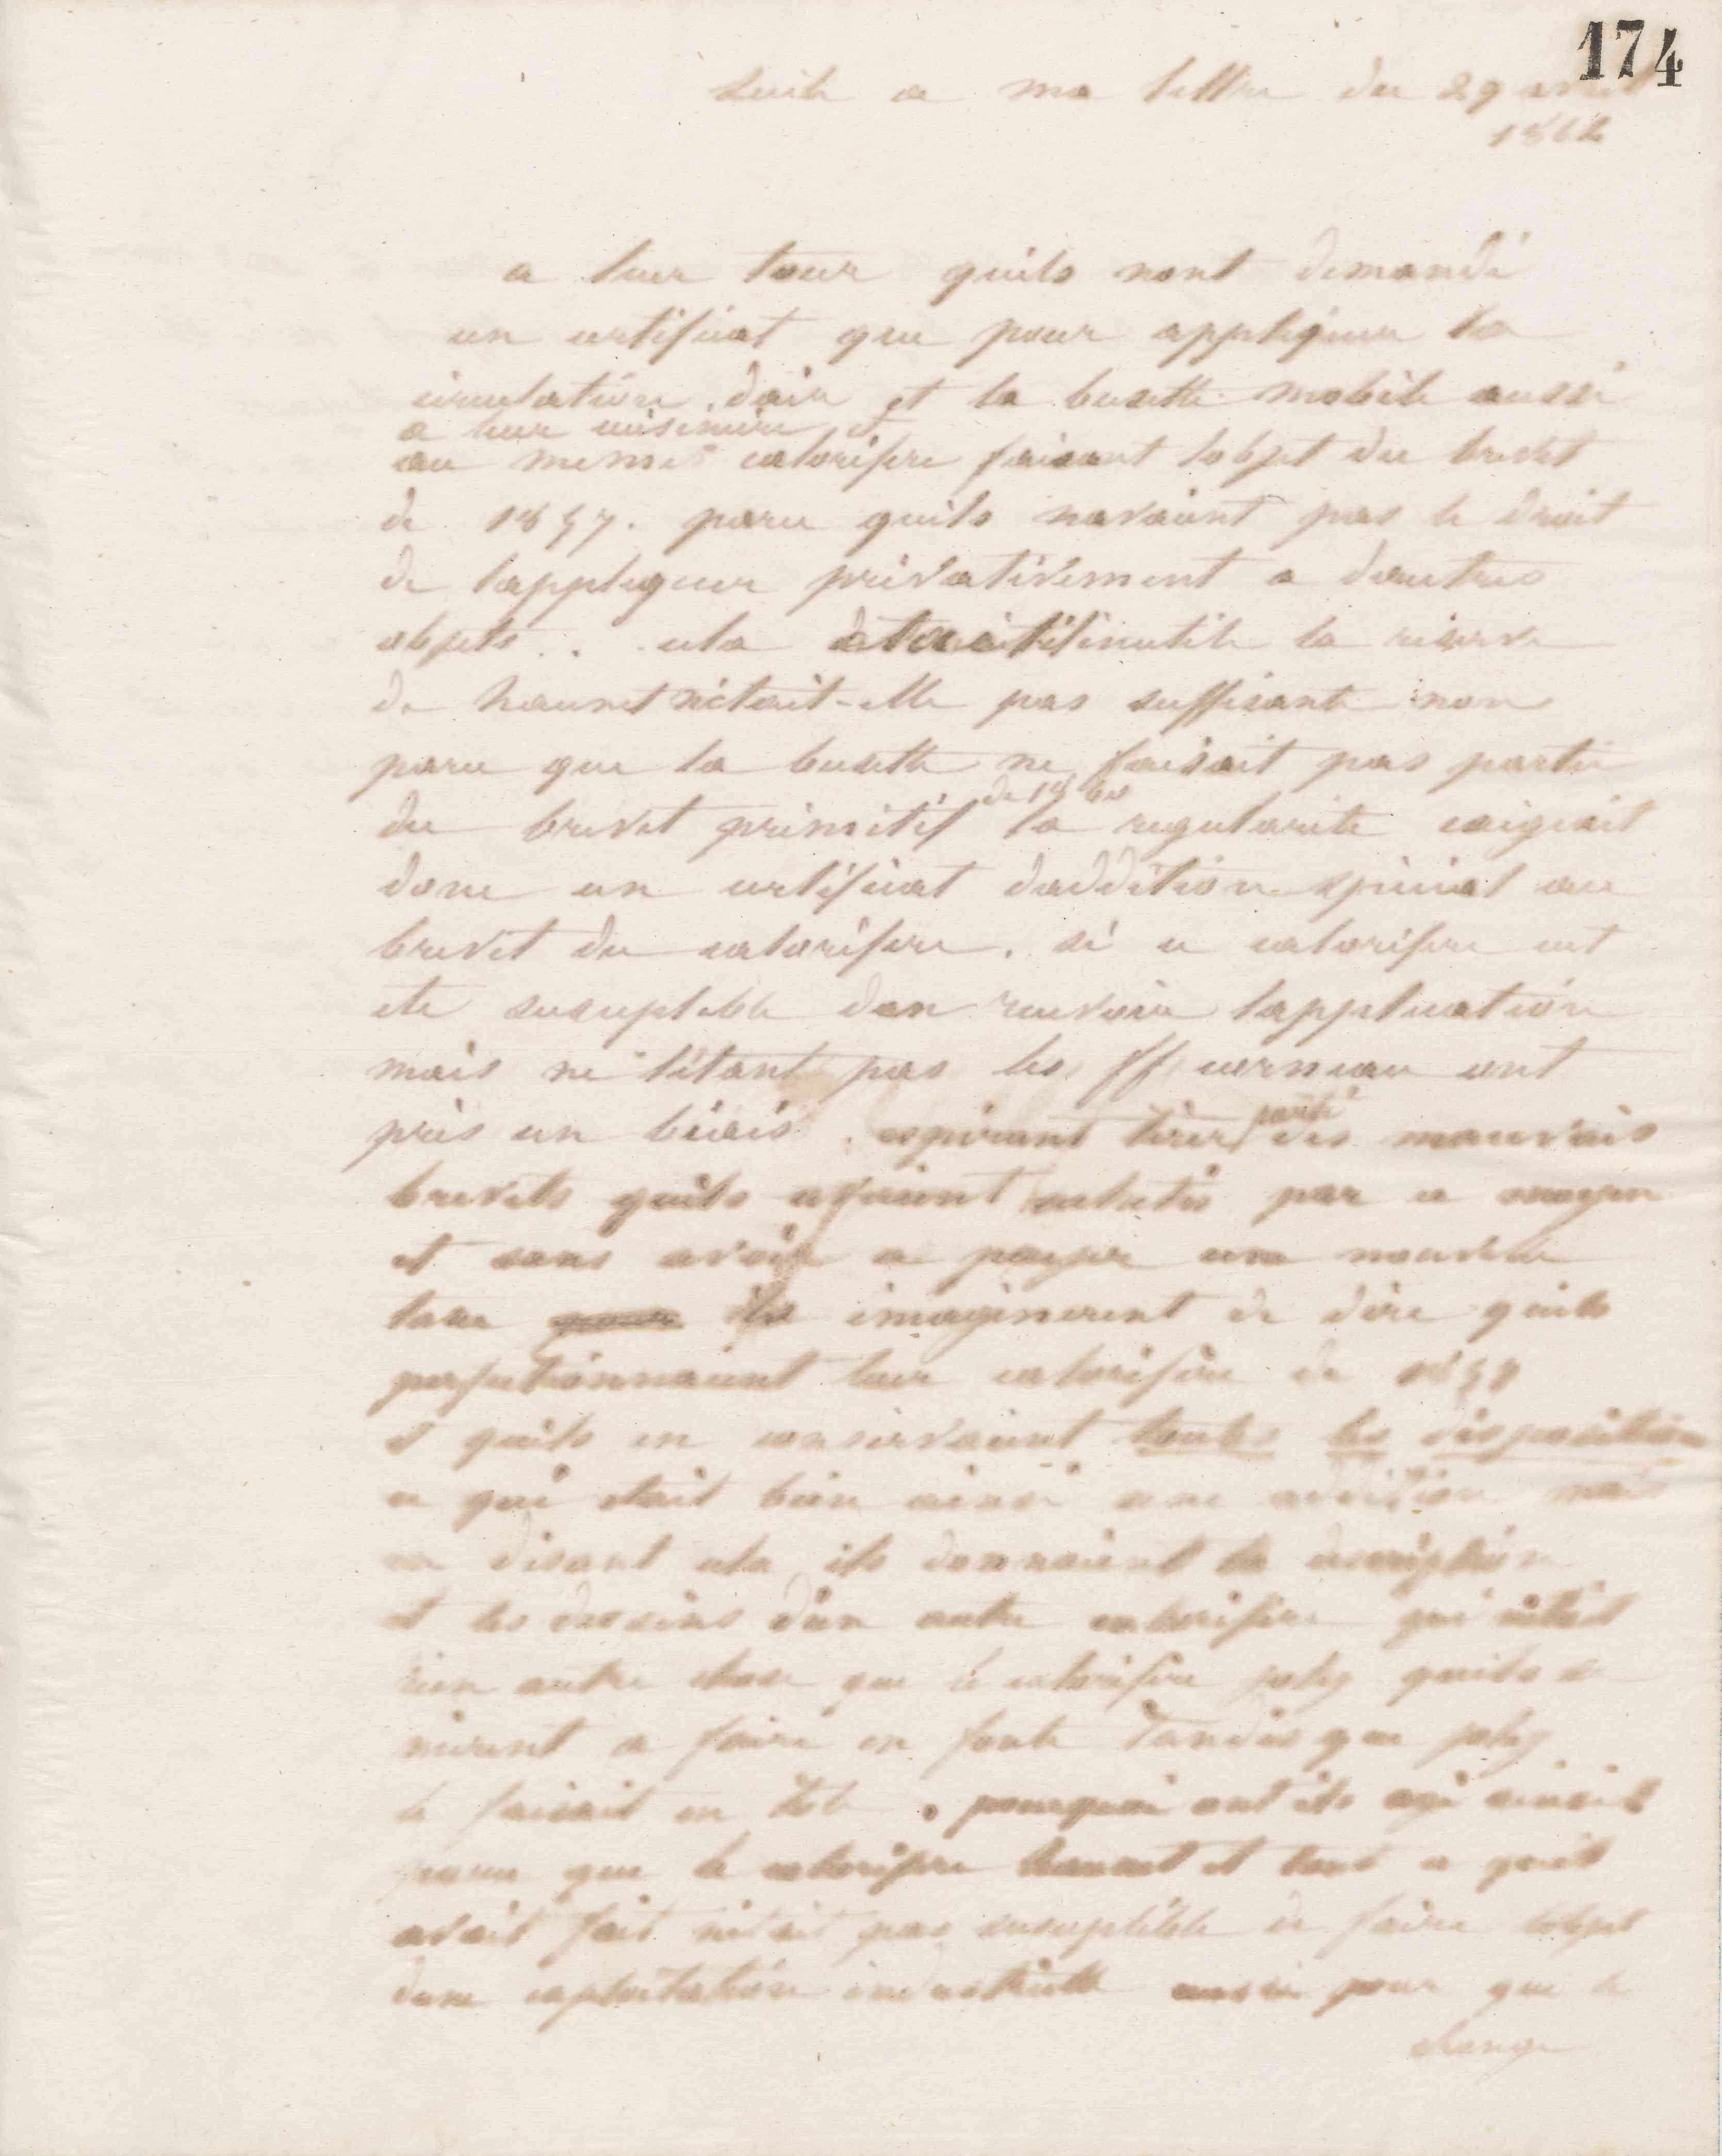 174
suite a ma lettre du 29 avril
1862
a leur tour quils nont demandé
un certificat que pour appliquer la
circulation dair et la busette mobile aussi
a leur cuisiniere et
au meme calorifere faisant lobjet du brevet
de 1857. parce quils navaient pas le droit
de lappliquer privativement a dautres
objets . . cela était-il inutile la reserve
de hauret n'était-elle pas suffisante non
parce que la busette ne faisait pas partie
de 1860
du brevet primitif la regularite exigeait
donc un certificat daddition special au
brevet du calorifere. si ce calorifere eut
ete susceptible den recevoir lapplication
mais ne l'étant pas les ff corneau ont
pris un biais. esperant tirer parti des mauvais
brevets quils avaient achetés par ce moyen
et sans avoir a payer une nouvelle
taxe ils imaginerent de dire quils
perfectionnaient leur calorifere de 1857
et quils en conservaient toutes les dispositions
ce qui était bien ainsi une addition mais
en disant cela ils donnaient la description
et les dessins d'un autre calorifere qui n'était
rien autre chose que le calorifere joly quils se
mirent a faire en fonte Tandis que joly
le faisait en tole. pourquoi ont ils agi ainsi
parce que le calorifere hauret et tout ce quil
avait fait n'était pas susceptible de faire lobjet
dune exploitation industrielle aussi pour que le
change